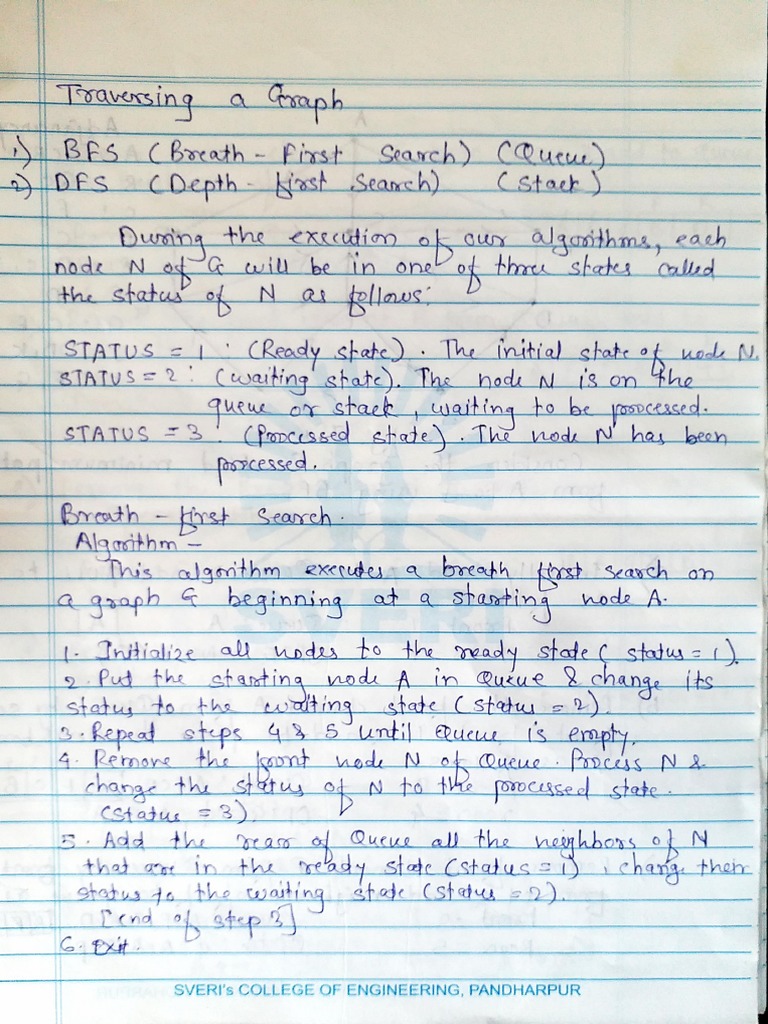 Traversing a Graph
1) BFS (Breath - First Search) (Queue)
2) DFS (Depth - first Search) (Stack)
During the execution of our algorithms, each
node N of G will be in one of three states called
the status of N as follows:
STATUS = 1 : (Ready state). The initial state of node N.
STATUS = 2 : (waiting state). The node N is on the
queue or stack, waiting to be processed.
STATUS = 3 : (Processed state). The node N has been
processed.
Breath - first Search.
Algorithm -
This algorithm executes a breath first search on
a graph G beginning at a starting node A.
1. Initialize all nodes to the ready state (status = 1).
2. Put the starting node A in Queue & change its
status to the waiting state (status = 2).
3. Repeat steps 4 & 5 until Queue is empty.
4. Remove the front node N of Queue. Process N &
change the status of N to the processed state.
(status = 3).
5. Add the rear of Queue all the neighbors of N
that are in the ready state (status = 1), change their
status to the waiting state (status = 2).
[end of step 3]
6. Exit.
SVERI
SVERI's COLLEGE OF ENGINEERING, PANDHARPUR